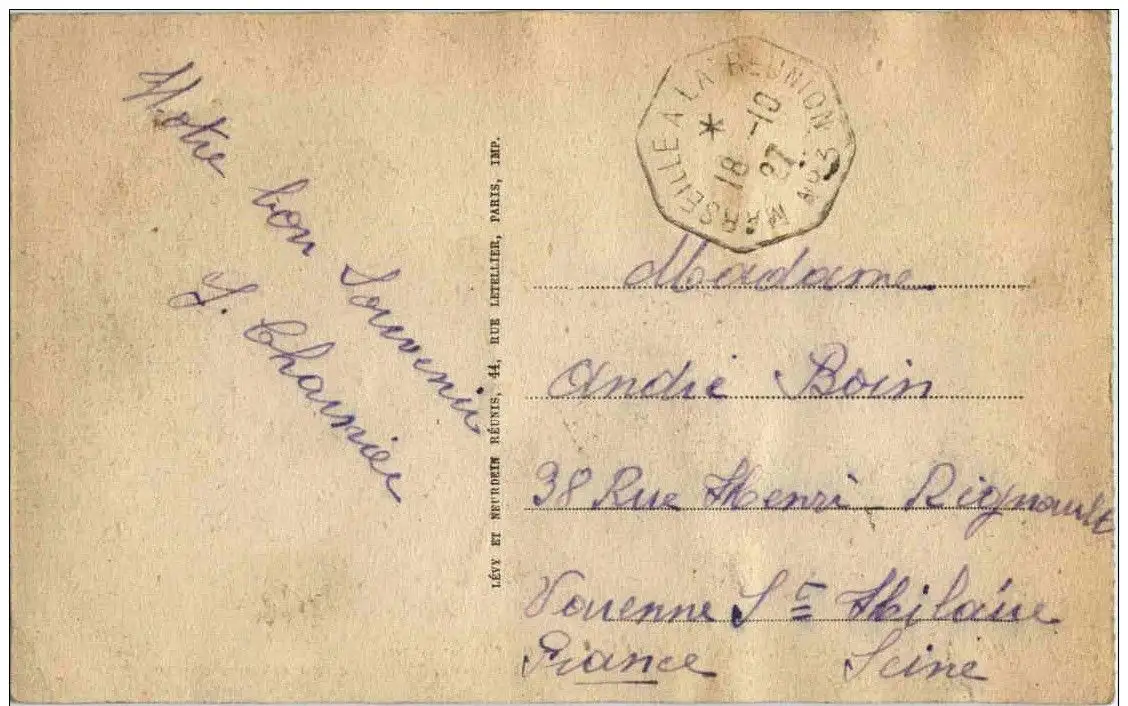 Notre
bon Souvenir
J. Charrier
LÉVY ET NEURDEIN RÉUNIS, 44, RUE LETELLIER, PARIS, IMP.
MARSEILLE A LA RÉUNION N°3
*
18 -10
27
Madame
André Boin
38 Rue Henri Rignault
Varenne St Hilaire
France Seine